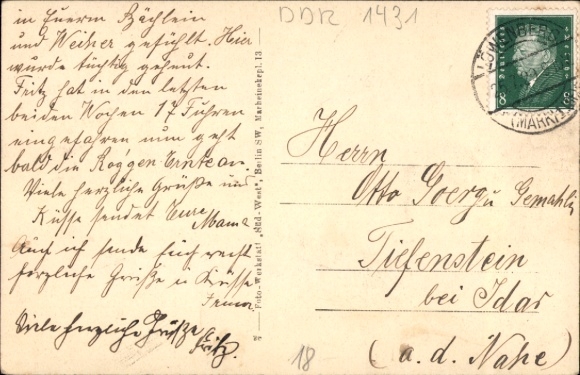 in Euerm Bächlein
und Weiher gefühlt. Hier
wurde tüchtig geheut.
Fritz hat in den letzten
beiden Wochen 17 Fuhren
eingefahren nun geht
bald die Roggen Ernte an.
Viele herzliche Grüße und
Küsse sendet Eure
Mama
Auch ich sende Euch recht
herzliche Grüße u Küsse
Viele herzliche Grüße
Fritz.
Foto-Werkstatt „Süd-West“, Berlin SW, Marheinekepl. 13
DDR 1431
LÖWENBERG
(MARK)
8 8
Herrn
Otto Goerg u Gemahlin
Tiefenstein
bei Idar
(a. d. Nahe)
18